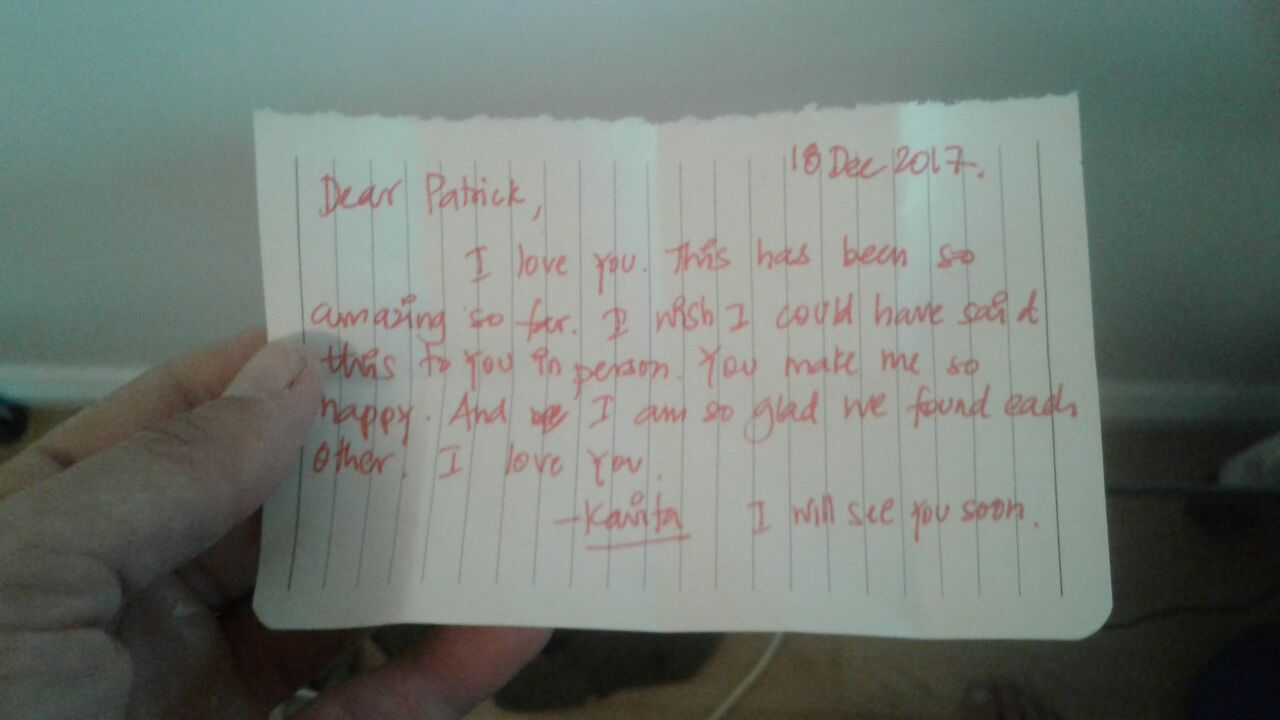 18 Dec 2017.
Dear Patrick,
I love you. This has been so
amazing so far. I wish I could have said
this to you in person. You make me so
happy. And I am so glad we found each
other. I love you.
—Kavita I will see you soon.